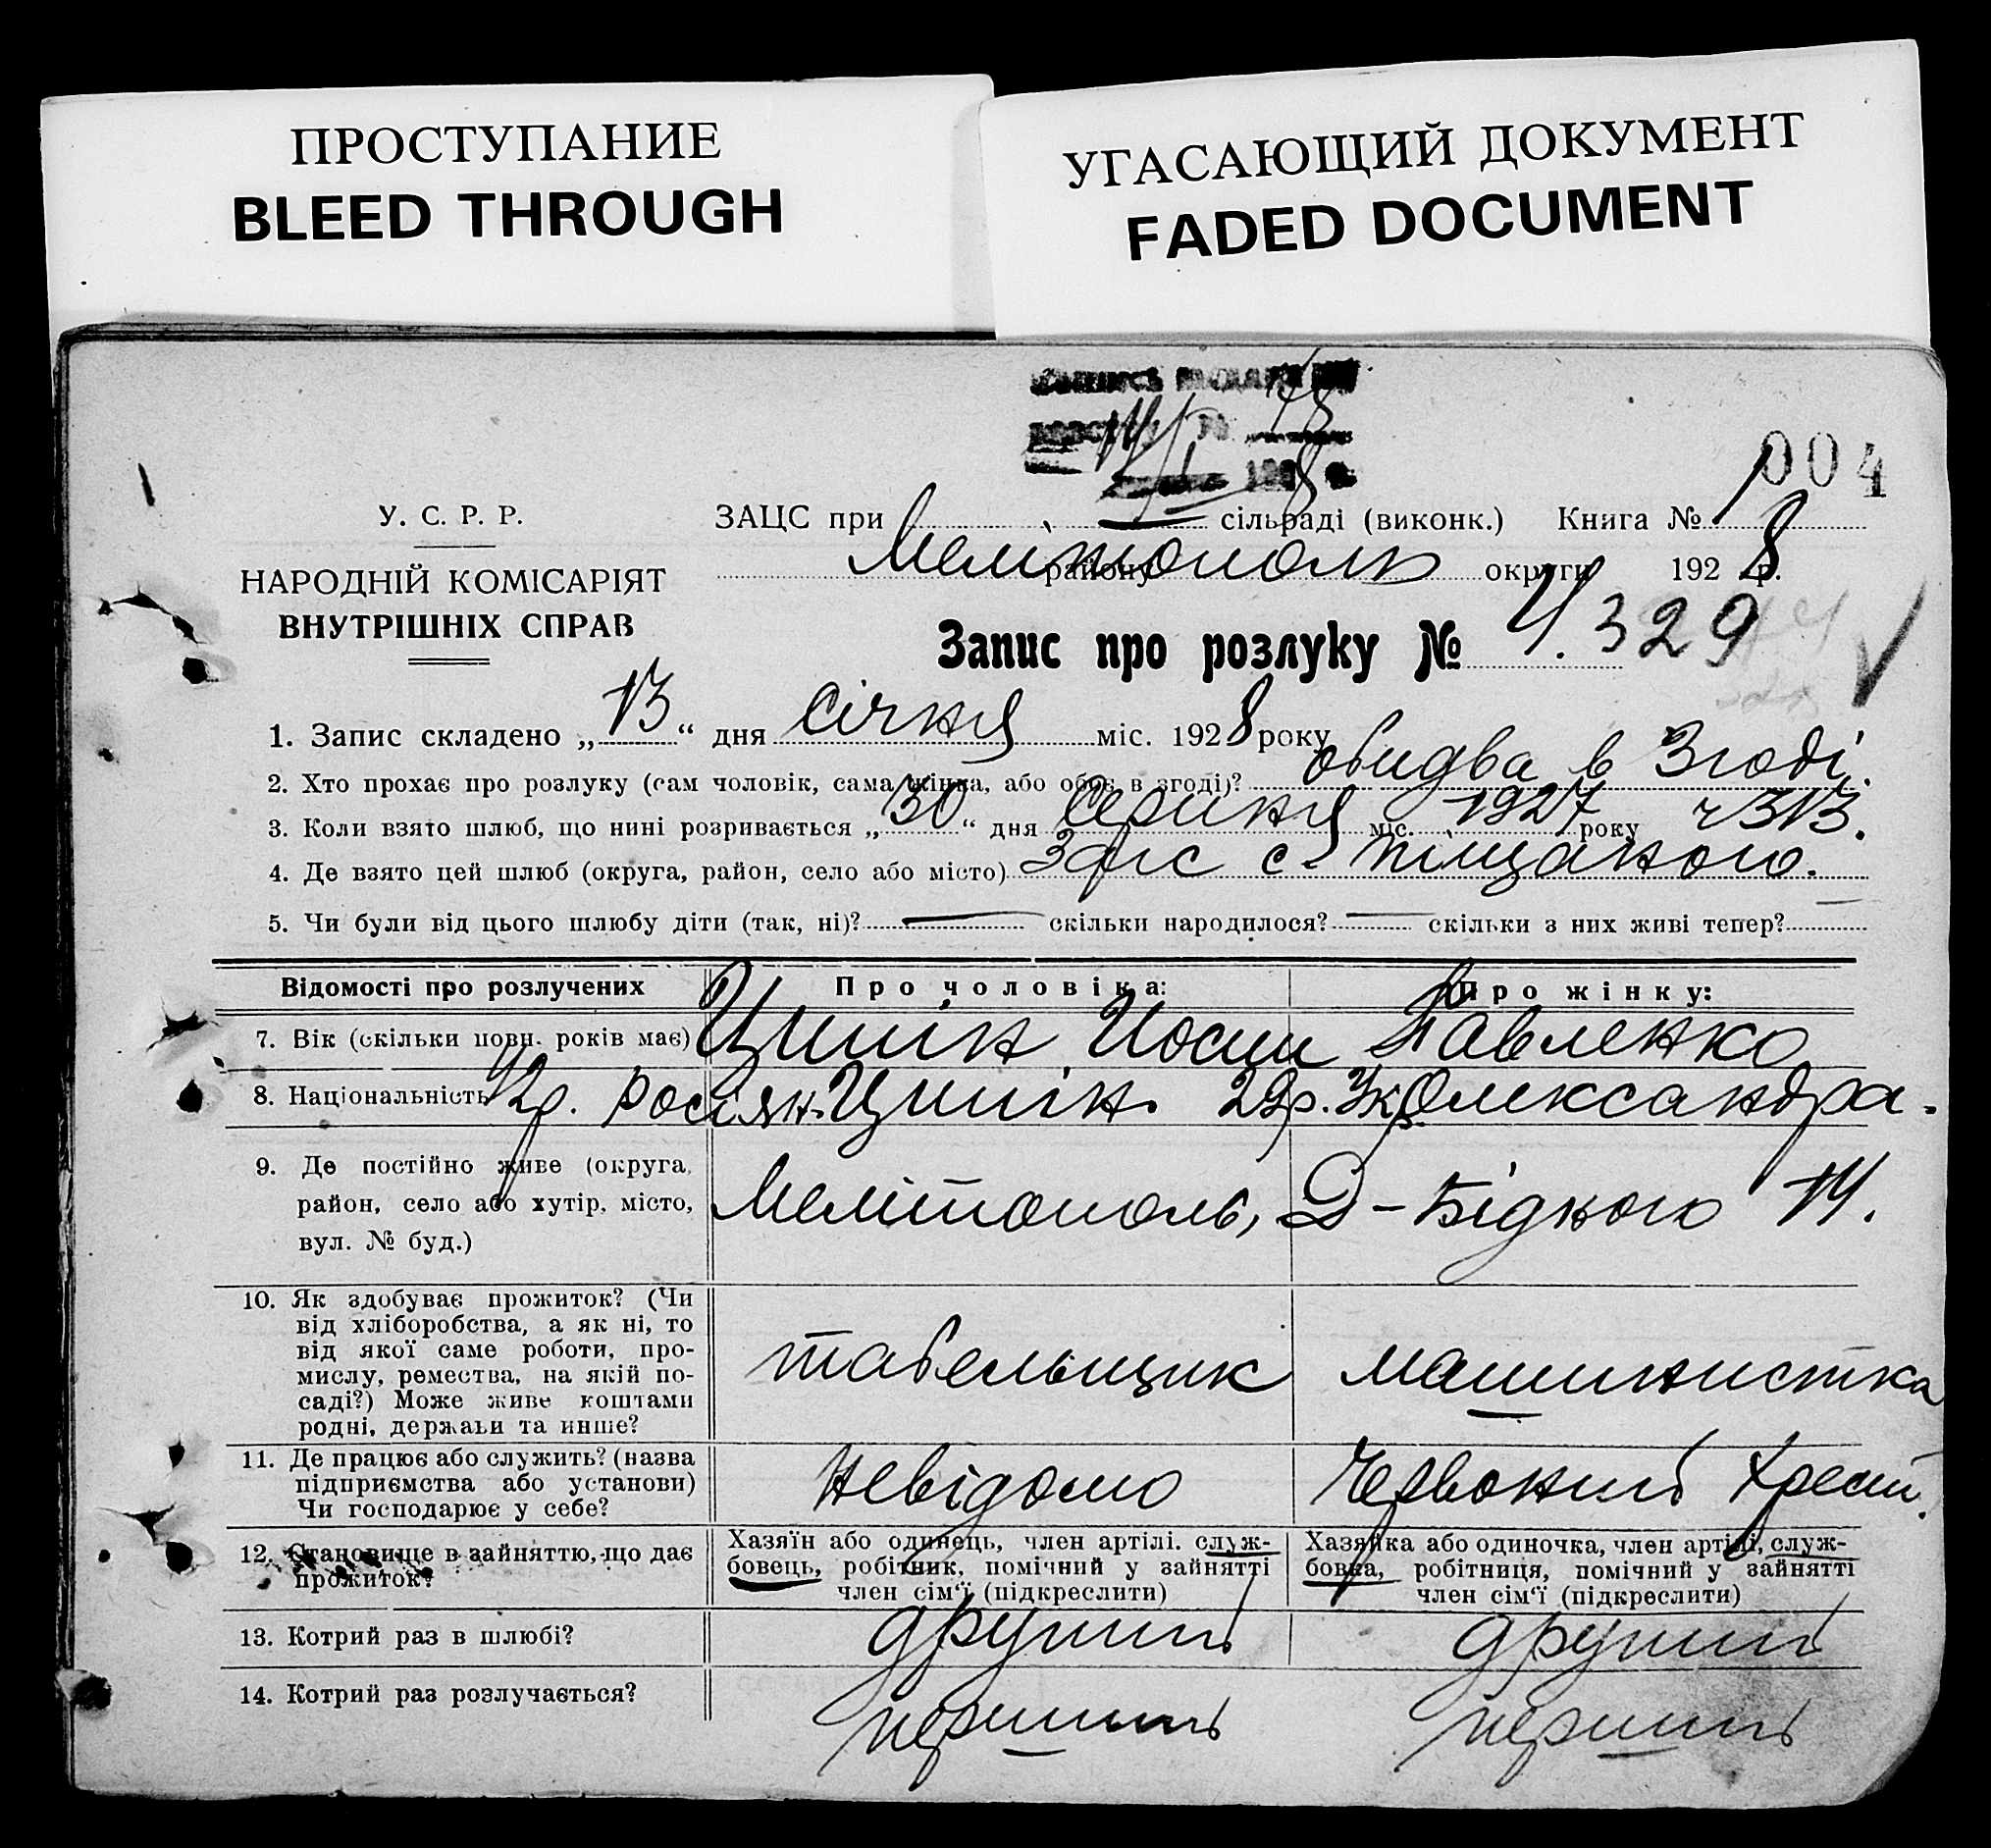 ПРОСТУПАНИЕ
BLEED THROUGH
УГАСАЮЩИЙ ДОКУМЕНТ
FADED DOCUMENT
004
У. С. Р. Р.
НАРОДНІЙ КОМІСАРІЯТ
ВНУТРІШНІХ СПРАВ
ЗАЦС при сільраді (виконк.) Книга № 1
Мелітополь району округи 1928 р.
Запис про розлуку № 4. 329
1. Запис складено „13“ дня січня міс. 1928 року
2. Хто прохає про розлуку (сам чоловік, сама жінка, або обоє в згоді)? обидва в Згоді.
3. Коли взято шлюб, що нині розривається „30“ дня Серпня міс. 1927 року
4. Де взято цей шлюб (округа, район, село або місто) Загс с. Піщаного.
5. Чи були від цього шлюбу діти (так, ні)? — скільки народилося? — скільки з них живі тепер?
Відомості про розлучених
Про чоловіка:
Про жінку:
7. Вік (скільки повн. років має)
Йосип Павленко
8. Національність
42р. росіян. 29р. Укр. Олександра.
9. Де постійно живе (округа, район, село або хутір, місто, вул. № буд.)
Мелітополь, Д-Бідного 14.
10. Як здобуває прожиток? (Чи
від хліборобства, а як ні, то
від якої саме роботи, про-
мислу, ремества, на якій по-
саді?) Може живе коштами
родні, держави та инше?
табельщик
машинистка
11. Де працює або служить? (назва
підприємства або установи)
Чи господарює у себе?
Невідомо
Червоний Хрест.
12. Становище в зайняттю, що дає
прожиток?
Хазяїн або одинець, член артілі. служ-
бовець, робітник, помічний у зайнятті
член сім'ї (підкреслити)
Хазяйка або одиночка, член артілі, служ-
бовка, робітниця, помічний у зайнятті
член сім'ї (підкреслити)
13. Котрий раз в шлюбі?
другий
другий
14. Котрий раз розлучається?
перший
перший